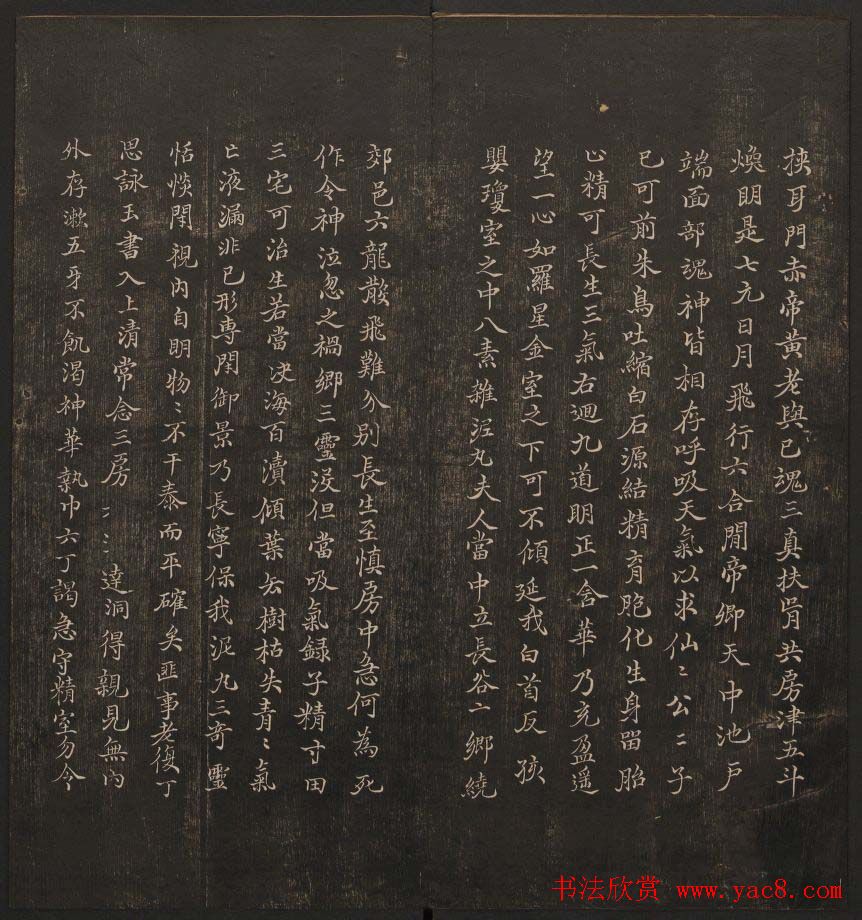 挾耳門赤帝黃老與已魂三真扶胥共房津五斗
煥明是七元日月飛行六合閒帝卿天中池戶
端面部魂神皆相存呼吸天氣以求仙〻公〻子
已可前朱鳥吐縮白石源結精育胞化生身留胎
心精可長生三氣右迴九道明正一含華乃充盈遥
望一心如羅星金室之下可不傾延我白首反孩
嬰瓊室之中八素雜泥丸夫人當中立長谷〻鄉繞
郊邑六龍散飛難分别長生至慎房中急何為死
作令神泣忽之禍鄉三靈没但當吸氣録子精寸田
三宅可治生若當决海百瀆傾葉去樹枯失青〻氣
亡液漏非已形專閉御景乃長寧保我泥九三奇靈
恬惔閉視內自明物〻不干泰而平確矣匪事老復丁
思詠玉書入上清常念三房〻〻達洞得親見無內
外存漱五牙不飢渴神華執巾六丁謁急守精室勿令
书法欣赏 www.yac8.com